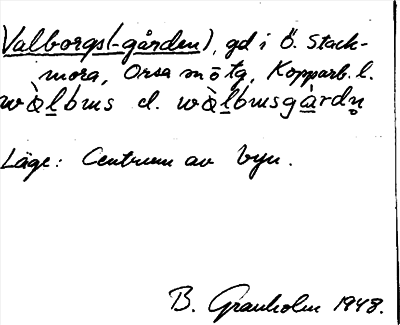 Valborgs(-gården), gd i Ö. Stack-
mora, Orsa sn ö tg, Kopparb. l.
wὰl̲bωs el. wὰl̲bωsgàrdn̥
Läge: Centrum av byn.
B. Granholm 1948.